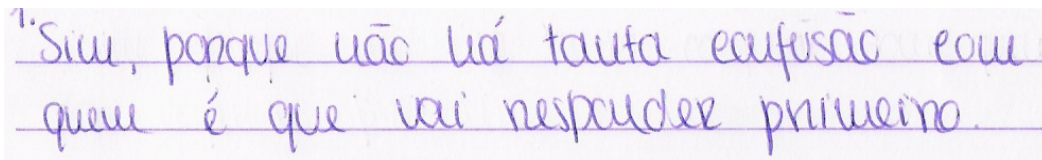 1. Sim, porque não há tanta confusão com
quem é que vai responder primeiro.